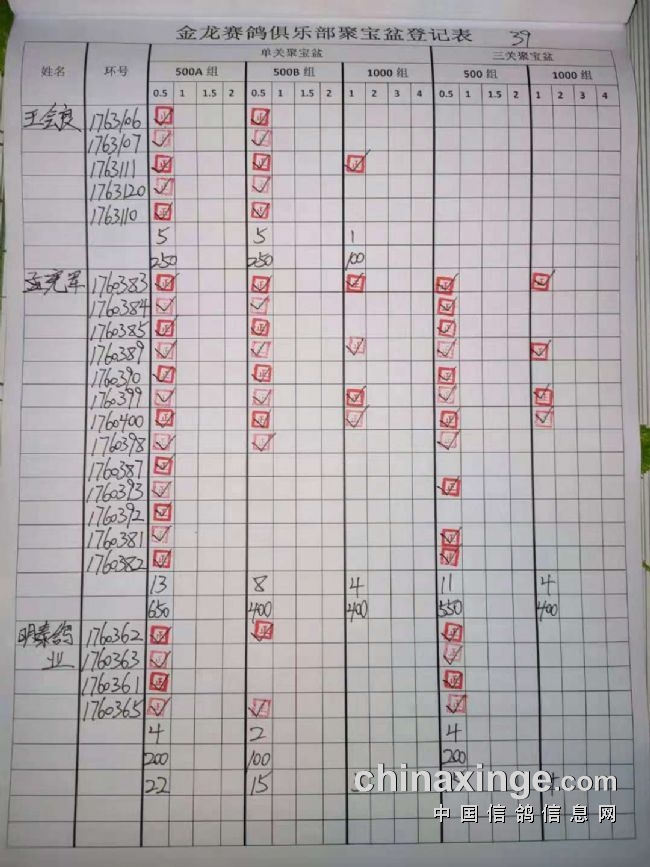 金龙赛鸽俱乐部聚宝盆登记表 39
姓名 环号 单关聚宝盆 三关聚宝盆
500A 组 500B 组 1000 组 500 组 1000 组
0.5 1 1.5 2 0.5 1 1.5 2 1 2 3 4 0.5 1 1.5 2 1 2 3 4
王会良 1763106
1763107
1763111
1763120
1763110
5 5 1
250 250 100
1760383
1760384
1760385
1760389
1760390
1760399
1760400
1760398
1760387
1760393
1760392
1760381
1760382
13 8 4 11 4
650 400 400 550 400
明泰鸽业 1760362
1760363
1760361
1760365
4 2 4
200 100 200
22 15
chinaxinge.com
中国信鸽信息网